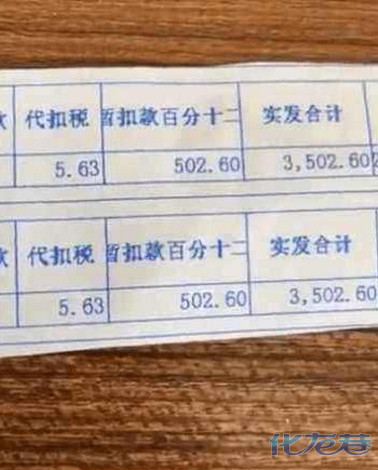 款 代扣税 暂扣款百分十二 实发合计
5.63 502.60 3,502.60
款 代扣税 暂扣款百分十二 实发合计
5.63 502.60 3,502.60
化龙巷